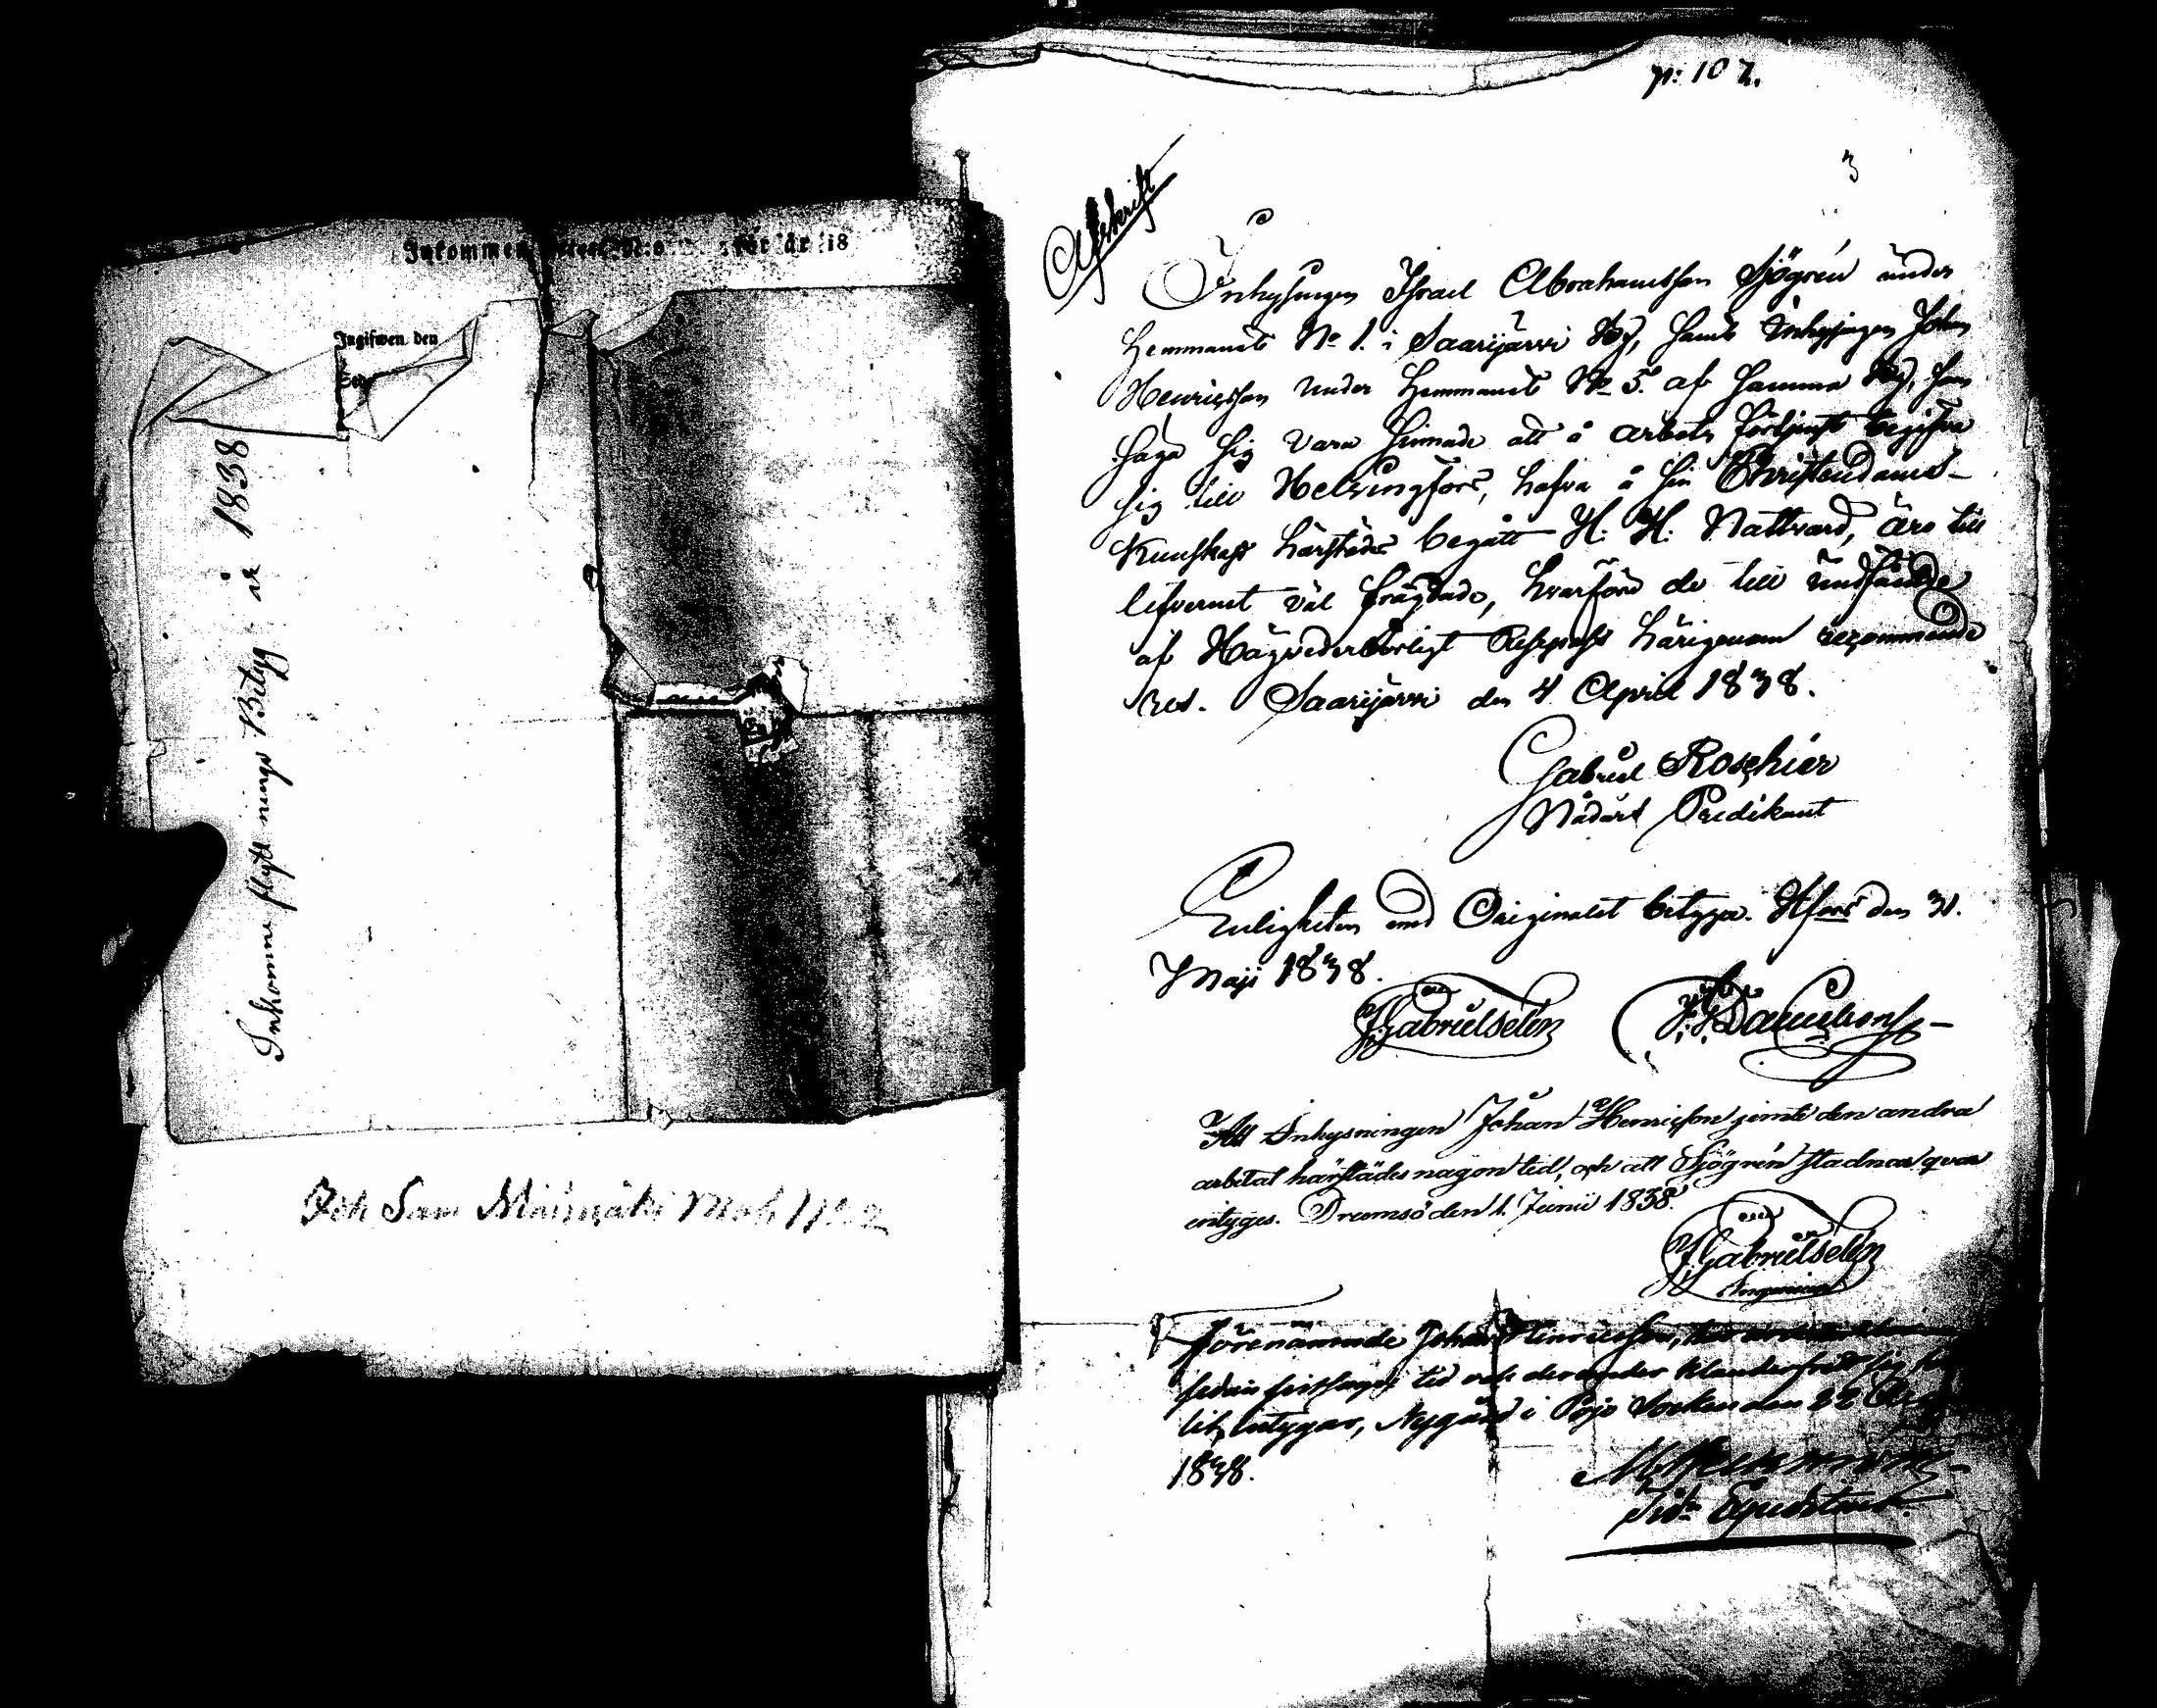 Inkommen för år 18
Ingifwen den
Inkomne flyttnings Betyg år 1838
Joh Sam
p: 107.
3
Afskrift
Inhysingen Israel Abrahamsson Sjögrén under
Hemmanet No 1. i Saarijärvi By, samt Inhysingen Johan
Henricsson under Hemmanet No 5. af samma By, som
säga sig vara sinnade att å arbets förtjenst begifva
sig till Helsingfors, hafva å sin Christendoms-
Kunskap härstädes begått H. H. Nattvard, äro till
lefvernet väl frägdade, hvarföre de till undfående
af Högvederbörligt Respass härigenom recommende
ras. Saarijärvi den 4 April 1838.
Gabriel Roschier
Nådårs Predikant
Enligheten med Originalet betyga. Hfors den 31.
Maji 1838.
Gabrielselen
Att Inhysningen Johan Henricson jemte den andra
arbetat härstädes någon tid, och att Sjögrén stadnar qvar
intyges. Drumsö den 1. Junii 1838.
Gabrielselen
Ingenieur
Förenämnde Johan Henricsson,
sedan sistsagde tid och derunder klanderfritt sig
intygar, Nygård i Pojo Socken den 22
1838.